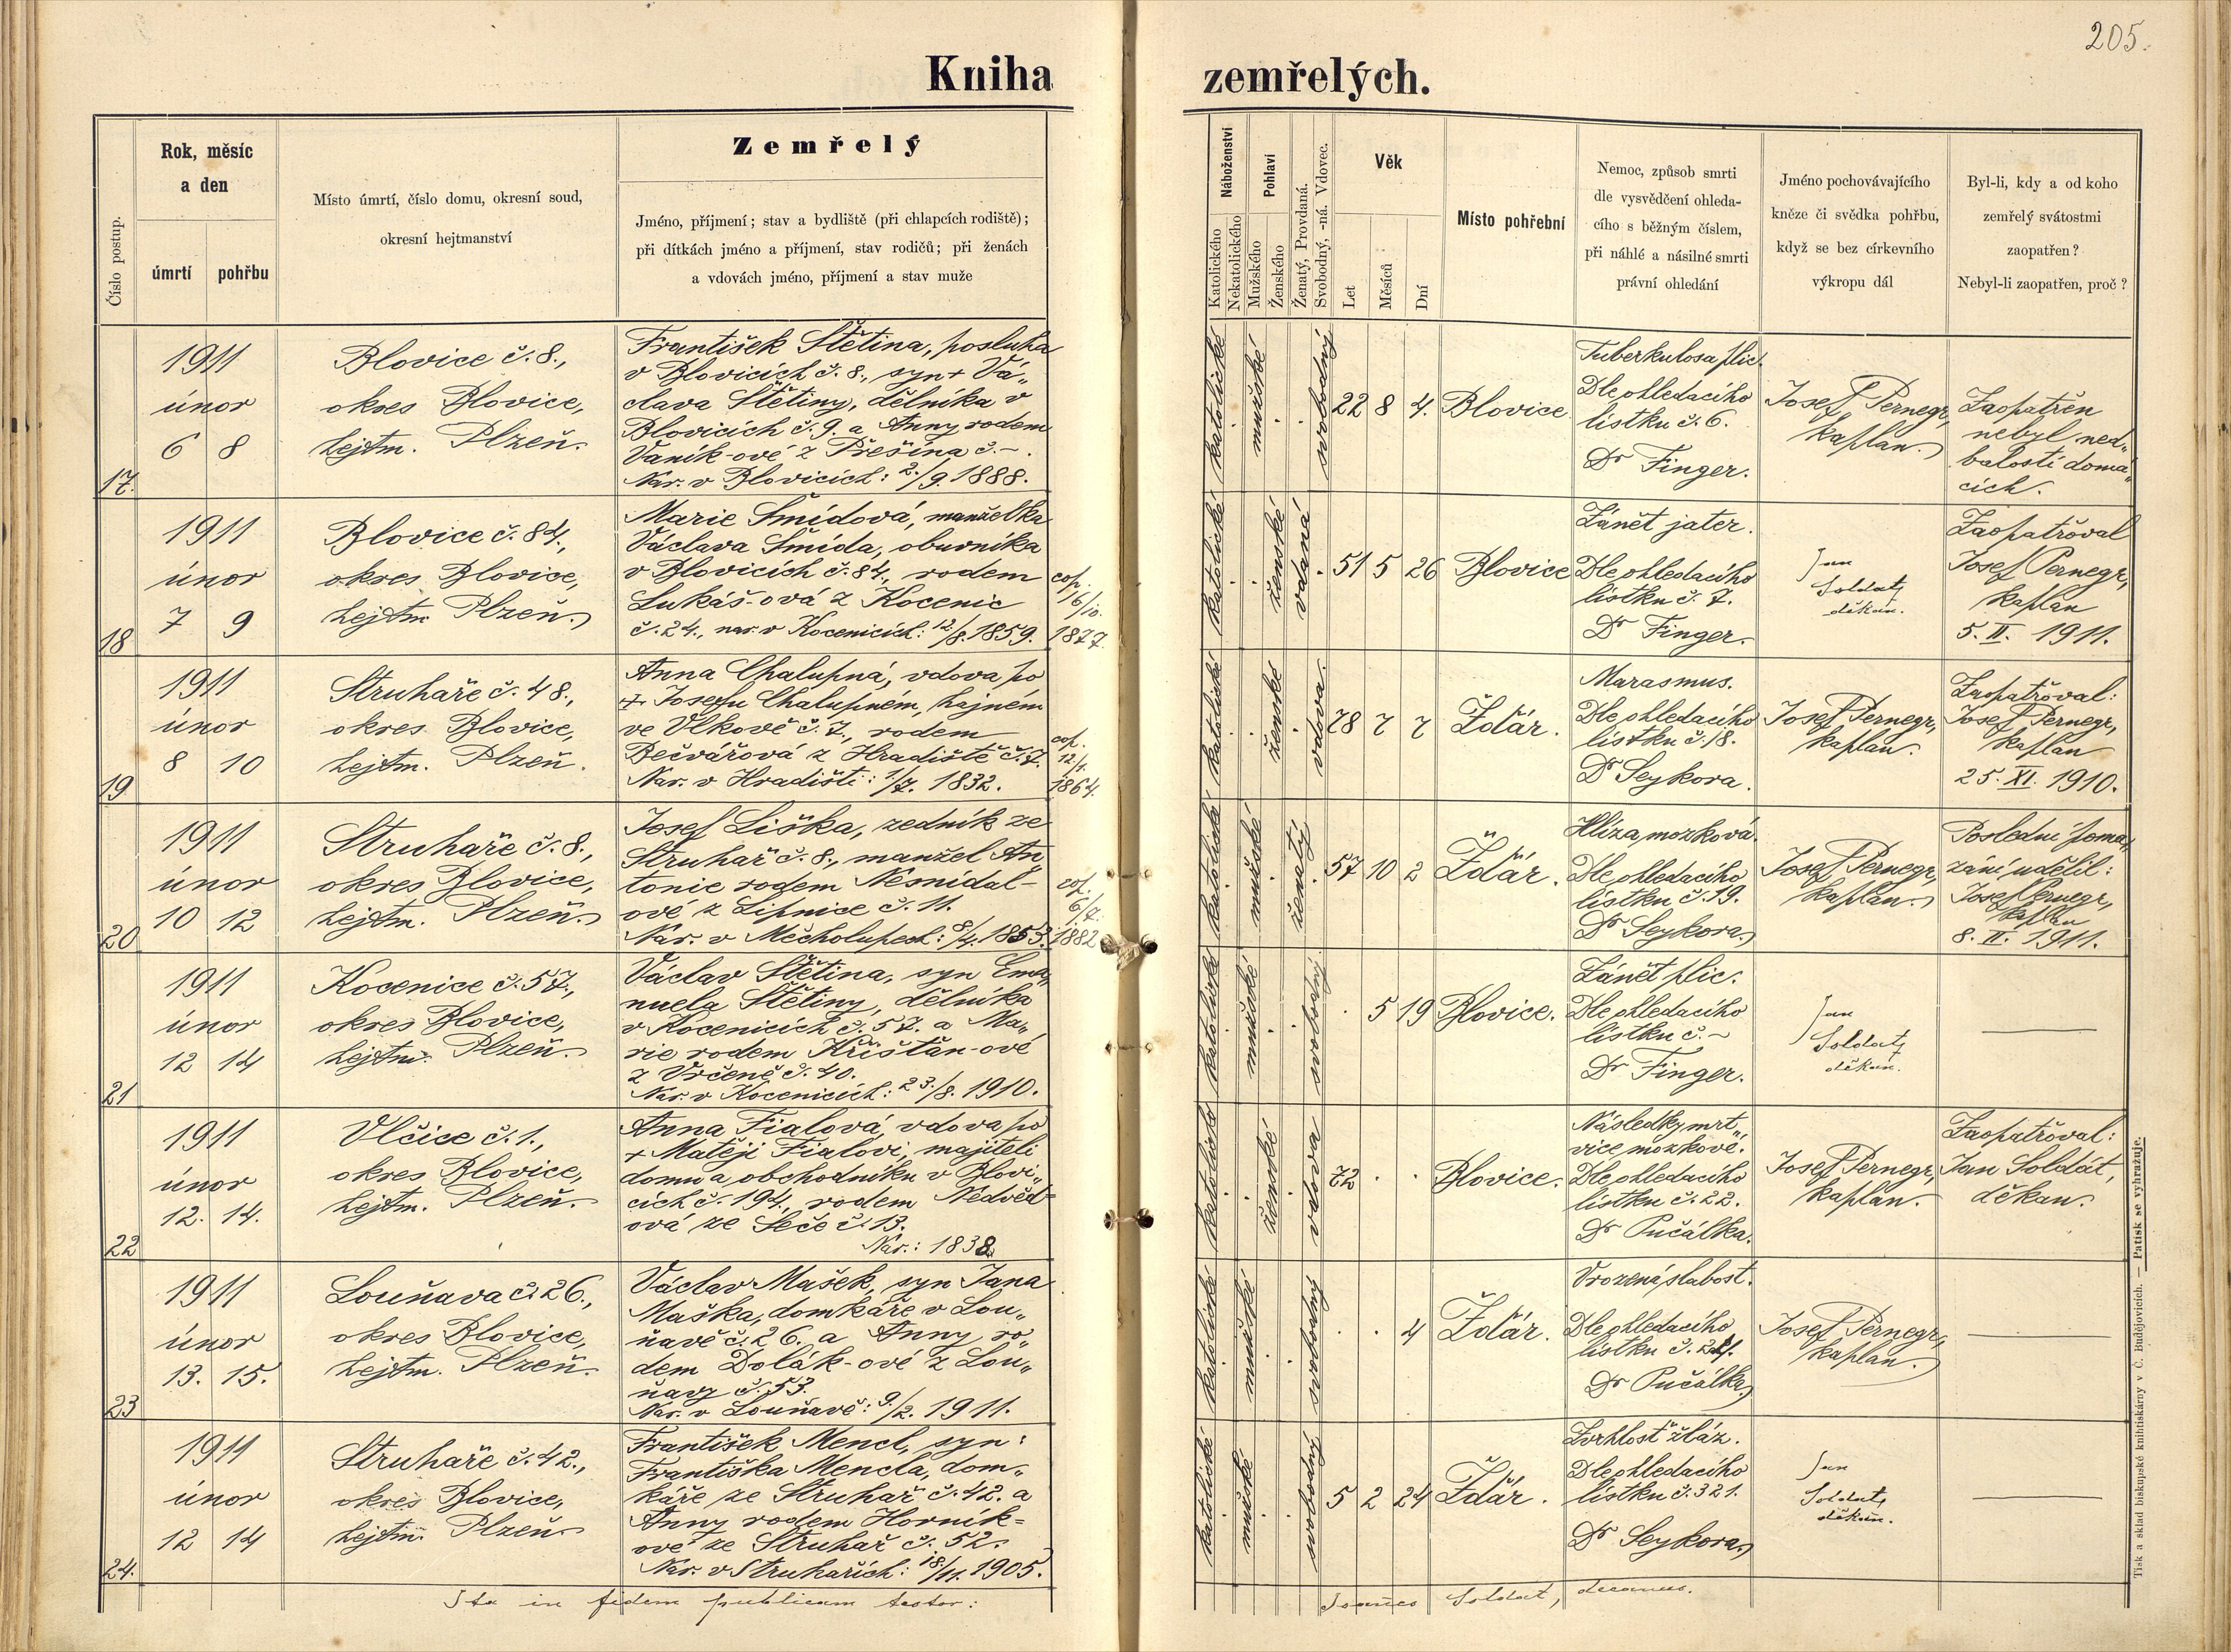 205.
Kniha zemřelých.
Číslo postup.
Rok, měsíc
a den
úmrtí
pohřbu
Místo úmrtí, číslo domu, okresní soud,
okresní hejtmanství
Zemřelý
Jméno, příjmení; stav a bydliště (při chlapcích rodiště);
při dítkách jméno a příjmení, stav rodičů; při ženách
a vdovách jméno, příjmení a stav muže
Náboženství
Katolického
Nekatolického
Pohlaví
Mužského
Ženského
Ženatý, Provdaná.
Svobodný, -ná. Vdovec.
Věk
Let
Měsíců
Dní
Místo pohřební
Nemoc, způsob smrti
dle vysvědčení ohleda-
cího s běžným číslem,
při náhlé a násilné smrti
právní ohledání
Jméno pochovávajícího
kněze či svědka pohřbu,
když se bez církevního
výkropu dál
Byl-li, kdy a od koho
zemřelý svátostmi
zaopatřen?
Nebyl-li zaopatřen, proč?
17.
1911
únor
6 8
Blovice č. 8.,
okres Blovice,
hejtm. Plzeň.
František Štětina, posluha
v Blovicích č. 8., syn + Vá„
clava Štětiny, dělníka v
Blovicích č. 9. a Anny rodem
Vaník-ové z Přešína č. -.
Nar. v Blovicích: 2./9. 1888.
katolické
mužské
svobodný
22 8 4.
Blovice
Tuberkulosa plic.
Dle ohledacího
lístku č. 6.
Dr Finger.
Josef Pernegr,
kaplan.
Zaopatřen
nebyl ned„
balostí domá„
cích.
18
1911
únor
7 9
Blovice č. 84.,
okres Blovice,
hejtm. Plzeň.
Marie Šmídová, manželka
Václava Šmída, obuvníka
v Blovicích č. 84., rodem
Lukáš-ová z Kocenic
č. 24., nar. v Kocenicích: 12/8. 1859.
cop.
16/10.
1877.
katolické
ženské
vdaná
51 5 26
Blovice
Zánět jater.
Dle ohledacího
lístku č. 7.
Dr Finger.
Jan
Soldát,
děkan.
Zaopatřoval
Josef Pernegr,
kaplan
5. II. 1911.
19
1911
únor
8 10
Struhaře č. 48.,
okres Blovice,
hejtm. Plzeň.
Anna Chalupná, vdova po
+ Josefu Chalupném, hajném
ve Vlkově č. 7., rodem
Bečvářová z Hradiště č. 7.
Nar. v Hradišti: 1/7. 1832.
cop.
12/4.
1864.
katolické
ženské
vdova.
78 7 7
Žďár.
Marasmus.
Dle ohledacího
lístku č. 18.
Dr Seykora.
Josef Pernegr,
kaplan.
Zaopatřoval:
Josef Pernegr,
kaplan
25. XI. 1910.
20
1911
únor
10 12
Struhaře č. 8.,
okres Blovice,
hejtm. Plzeň.
Josef Liška, zedník ze
Struhař č. 8., manžel An„
tonie rodem Nesnídal-
ové z Lipnice č. 11.
Nar. v Měcholupech: 8/4. 1853.
cop.
6/7.
1882
katolické
mužské
ženatý
57 10 2
Žďár.
Hlíza mozková.
Dle ohledacího
lístku č. 19.
Dr Seykora.
Josef Pernegr,
kaplan.
Poslední poma„
zání udělil:
Josef Pernegr,
kaplan
8. II. 1911.
21
1911
únor
12 14
Kocenice č. 57.,
okres Blovice,
hejtm. Plzeň.
Václav Štětina, syn Ema„
nuela Štětiny, dělníka
v Kocenicích č. 57. a Ma„
rie rodem Křišťan-ové
z Vrčeně č. 40.
Nar. v Kocenicích: 23./8. 1910.
katolické
mužské
svobodný
. 5 19
Blovice.
Zánět plic.
Dle ohledacího
lístku č. -
Dr Finger.
Jan
Soldát,
děkan.
22
1911
únor
12. 14.
Vlčice č. 1.,
okres Blovice,
hejtm. Plzeň.
Anna Fialová, vdova po
+ Matěji Fialovi, majiteli
domu a obchodníku v Blovi„
cích č. 194., rodem Nedvěd-
ová ze Seče č. 13.
Nar.: 1838.
katolické
ženské
vdova
72 . .
Blovice.
Následky mrt„
vice mozkové.
Dle ohledacího
lístku č. 22.
Dr Pučálka.
Josef Pernegr,
kaplan.
Zaopatřoval:
Jan Soldát,
děkan.
23
1911
únor
13. 15.
Louňava č. 26.,
okres Blovice,
hejtm. Plzeň.
Václav Mašek, syn Jana
Maška, domkáře v Lou„
ňavě č. 26. a Anny ro„
dem Dolák-ové z Lou„
ňavy č. 53.
Nar. v Louňavě: 9./2. 1911.
katolické
mužské
svobodný
. . 4
Žďár.
Vrozená slabost.
Dle ohledacího
lístku č.
Dr Pučálka.
Josef Pernegr,
kaplan.
24.
1911
únor
12 14
Struhaře č. 42.,
okres Blovice,
hejtm. Plzeň.
František Mencl, syn:
Františka Mencla, dom„
káře ze Struhař č. 42. a
Anny rodem Horník-
ové ze Struhař č. 52.
Nar. v Struhařích: 18./11. 1905.
katolické
mužské
svobodný
5 2 24
Žďár.
Zvrhlost žláz.
Dle ohledacího
lístku č. 321.
Dr Seykora.
Jan
Soldát,
děkan.
Ita in fidem publicam testor: Joannes Soldát, decanus.
Tisk a sklad biskupské knihtiskárny v Č. Budějovicích. — Patisk se vyhražuje.